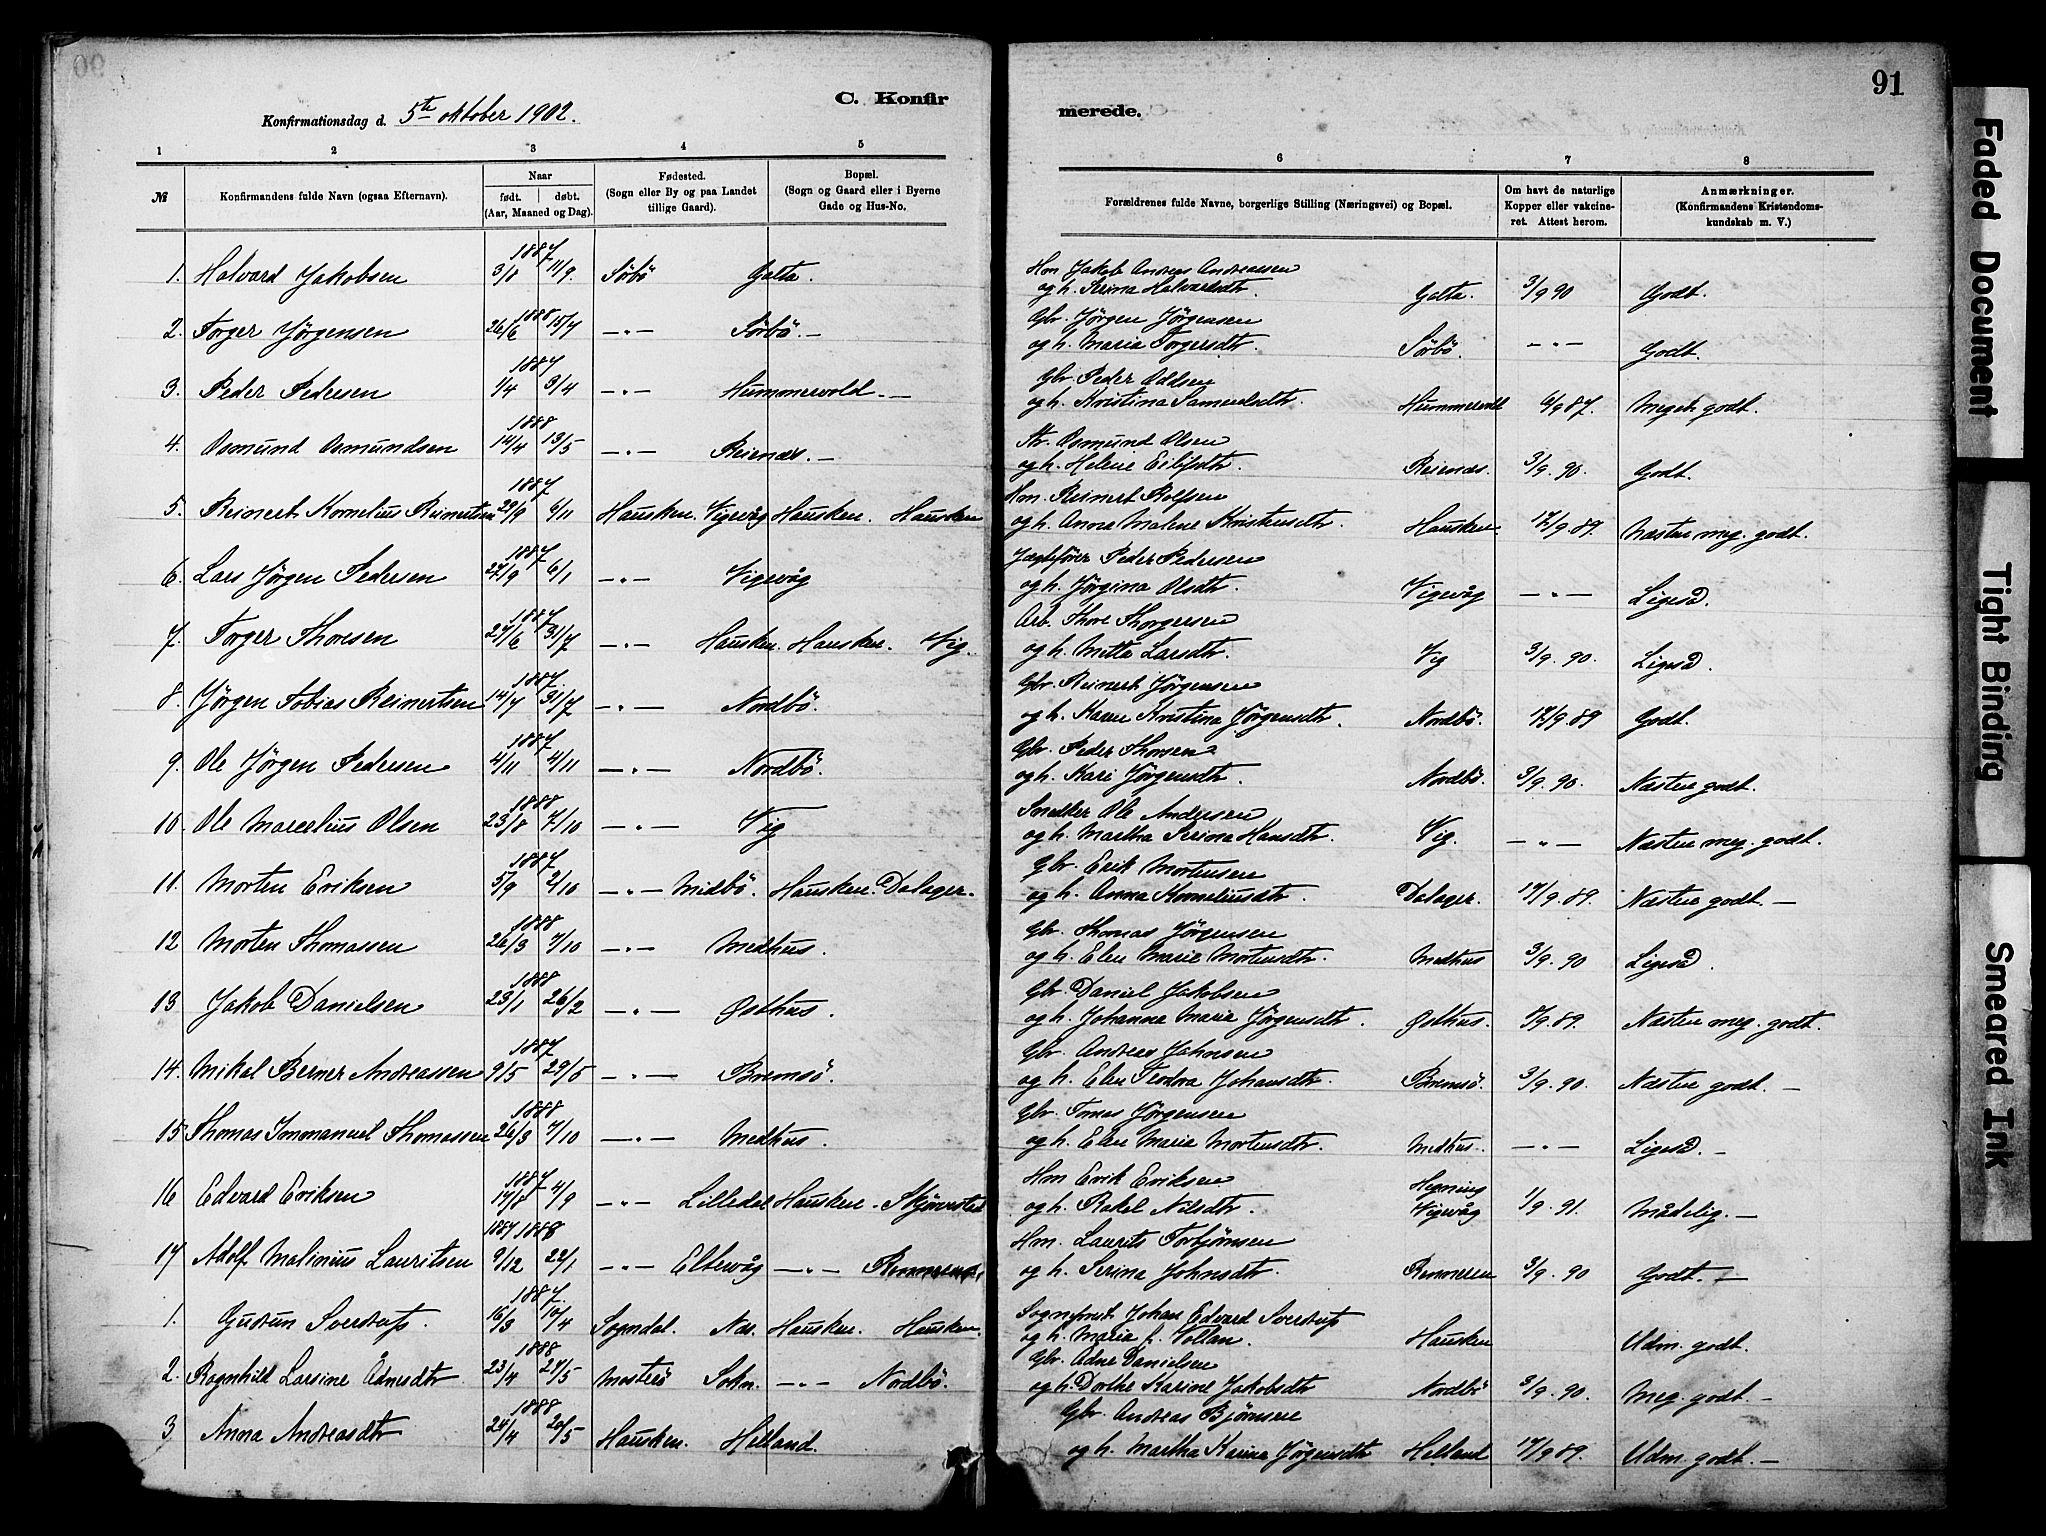 91
C. Konfir
merede.
Konfirmationsdag d. 5te oktober 1902.
1 2 3 4 5 6 7 8
№ Konfirmandens fulde Navn (ogsaa Efternavn). Naar født. døbt. (Aar, Maaned og Dag). Fødested. (Sogn eller By og paa Landet tillige Gaard). Bopæl. (Sogn og Gaard eller i Byerne Gade og Hus-No. Forældrenes fulde Navne, borgerlige Stilling (Næringsvei) og Bopæl. Om havt de naturlige Kopper eller vakcineret. Attest herom. Anmærkninger. (Konfirmandens Kristendomskundskab m. V.)
1887 Hm Jakob Andreas Andreassen
1. Halvard Jakobsen 3/8 11/9. Sörbö Galta. og h. Serina Halvardsdtr. Galta. 3/9 90 Godt.
1888 Gbr. Jørgen Jørgensen
2. Torger Jørgensen 26/6 15/7 —"— Sörbö. — og h. Maria Torgersdtr. Sörbö. —"— Godt.
1887 Gbr. Peder Oddsen
3. Peder Pedersen 1/4 3/4 —"— Hummervold. — og h. Kristina Samuelsdtr. Hummervold 6/9 87. Meget godt.
1888 Str. Osmund Olsen
4. Osmund Osmundsen 14/4 13/5 —"— Reienæs. — og h. Helene Eilifsdtr. Reienæs. 3/9. 90. Godt.
1887 Hm. Reinert Rolfsen
5. Reinert Kornelius Reinertsen 29/9 6/11 Hausken. Vigevåg Hausken. Hausken og h. Anna Malene Kristensdtr. Hausken. 17/9. 89. Næsten meg. godt.
1887 Jægtefører Peder Pedersen
6. Lars Jørgen Pedersen 27/9 6/1 —"— Vigevåg og h. Jørgina Olsdtr. Vigevåg —"— Ligeså.
1887 Arb. Thore Thorgersen
7. Torger Thoresen 27/6 31/7 —"— Hausken. Hausken. Vig. og h. Mette Larsdtr. Vig 3/9. 90. Ligeså.
1887. Gbr. Reinert Jørgensen
8. Jørgen Tobias Reinertsen 14/7 31/7 —"— Nordbö. og h. Karen Kristina Jørgensdtr. Nordbö. 17/9. 89 Godt.
1887 Gbr. Peder Thorsen
9. Ole Jørgen Pedersen 4/11 4/11 —"— Nordbö. og h. Kari Jørgensdtr. Nordbö. 3/9. 90. Næsten godt.
1888 Snedker Ole Andersen
10. Ole Marcelius Olsen 23/8 7/10 —"— Vig og h. Martha Serina Hansdtr. Vig. —"— Næsten meg. godt.
1887 Gbr. Erik Mortensen
11. Morten Eriksen 5/9 2/10 —"— Midbö. Hausken. Dalager. og h. Anna Korneliusdtr. Dalager. 17/9. 89. Næsten godt. —
1888 Gbr. Thomas Jørgensen
12 Morten Thomassen 26/3 7/10 —"— Medhus. og h. Elen Marie Mortensdtr. Medhus 3/9. 90 Ligeså.
1888 Gbr. Daniel Jakobsen
13 Jakob Danielsen 23/1 26/2 —"— Østhus. og h. Johanna Maria Jørgensdtr. Østhus. 17/9. 89. Næsten meg. godt.
1887 Gbr. Andreas Johnsen
14. Mikal Berner Andreassen 9/5 29/5 —"— Bremsö. og h. Elen Teodora Johansdtr. Bremsö. 3/9. 90. Næsten godt. —
1888 Gbr. Tomas Jørgensen
15. Thomas Immanuel Thomassen 26/3 7/10 —"— Medhus. og h. Elen Maria Mortensdtr. Medhus. —"— Ligeså. —
1887 Hm Erik Eriksen Hegning
16 Edvard Eriksen 17/8 4/9 —"— Lilledal Hausken. og h. Rakel Nilsdtr. Vigevåg 1/9. 91. Mådelig. —
1887 1888 Hm. Laurits Torbjørnsen
17 Adolf Malinius Lauritsen 9/12 22/1 —"— Eltevåg —"— og h. Serina Johnsdtr. Renneren 3/9. 90 Godt. —
1887. Sogneprest Johan Edvard Sverdrup
1. Gudrun Sverdrup. 16/3 10/4 Sogndal. Næs. Hausken. Hausken. og h. Maria f. Vollan. Hausken Udm. godt.
1888 Gbr. Adne Danielsen
2. Ragnhild Larsine Ådnesdtr 23/4 27/5 Mosterö Sokn. —"— Nordbö. og h. Dorthe Karine Jakobsdtr Nordbö 3/9. 90. Meg. godt. —
1888 Gbr. Andreas Bjørnsen
3 Anna Andreasdtr 24/4 20/5 Hausken. Helland. og h. Martha Karina Jørgensdtr Helland 17/9 89. Udm. godt. —
Faded Document
Tight Binding
Smeared Ink